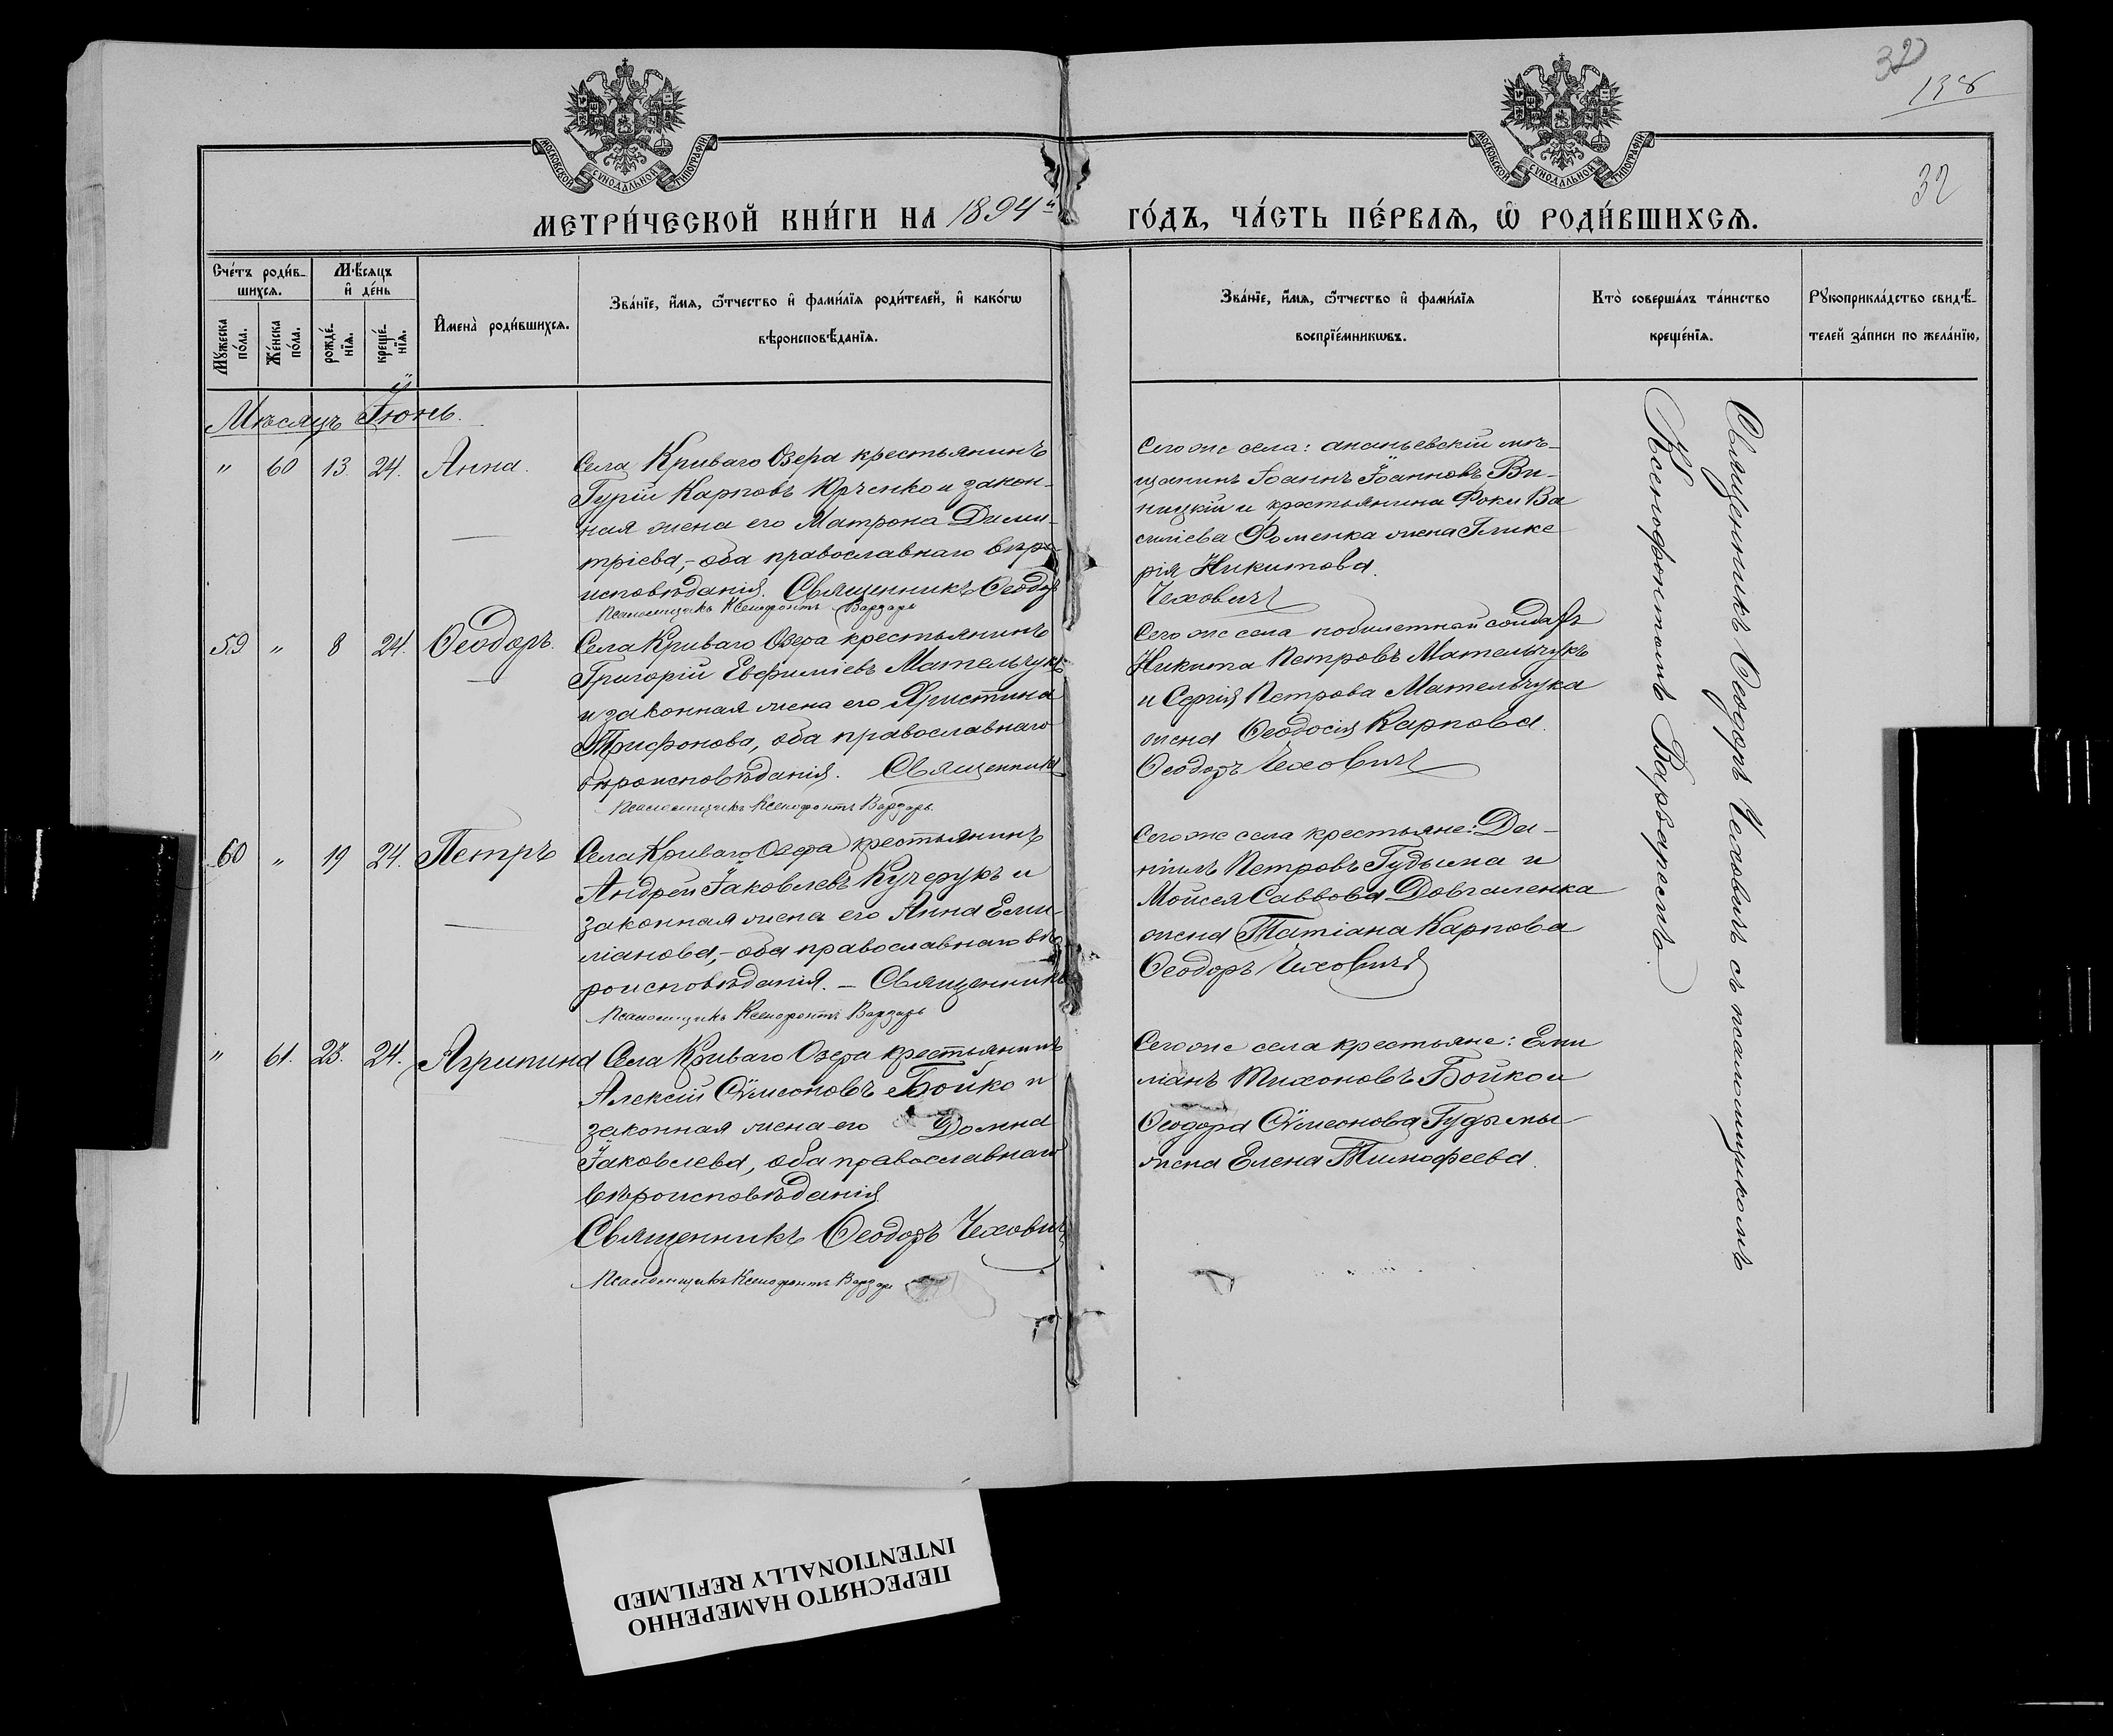 32
138
32
МОСКОВСКОЙ СѴНОДАЛЬНОЙ ТИПОГРАФІИ
МОСКОВСКОЙ СѴНОДАЛЬНОЙ ТИПОГРАФІИ
МЕТРИ́ЧЕСКОЙ КНИ́ГИ НА 1894й ГО́ДЪ, ЧА́СТЬ ПЕ́РВАѦ, Ѡ҆ РОДИ́ВШИХСѦ.
Сче́тъ роди́в-
шихсѧ.
Мꙋ́жеска по́ла.
Же́нска по́ла.
Мѣ́сѧцъ
и҆ де́нь
рожде́-
нїѧ.
креще́-
нїѧ.
И҆мена̀ роди́вшихсѧ.
Зва́нїе, и҆́мѧ, ѻ҆́тчество и҆ фами́лїѧ роди́телей, и҆ како́гѡ
вѣроисповѣ́данїѧ.
Зва́нїе, и҆́мѧ, ѻ҆́тчество и҆ фами́лїѧ
воспрїе́мникѡвъ.
Кто̀ соверша́лъ та́инство
креще́нїѧ.
Рꙋкоприкла́дство свидѣ́-
телей за́писи по жела́нїю.
Мѣсяцъ Іюнь.
" 60 13. 24. Анна.
Села Криваго Озера крестьянинъ
Гурій Карповъ Юрченко и закон-
ная жена его Матрона Дими-
тріева,- оба православнаго вѣро-
исповѣданія. Священникъ Ѳеодоръ
Псаломщикъ Ксенофонтъ Варзарь
Сего же села: ананьевскій мѣ-
щанинъ Іоаннъ Іоанновъ Ви-
ницкій и крестьянина Фоки Ва
силіева Фоменка жена Глике
рія Никитова.
Чеховичъ
59 " 8 24. Ѳеодоръ.
Села Криваго Озера крестьянинъ
Григорій Евфиміевъ Мательчукъ
и законная жена его Христина
Трифонова, оба православнаго
вѣроисповѣданія. Священникъ
Псаломщикъ Ксенофонтъ Варзарь.
Сего же села побилетный солдатъ
Никита Петровъ Мательчукъ
и Сергія Петрова Мательчука
жена Ѳеодосія Карпова.
Ѳеодоръ Чеховичъ
60 " 19 24. Петръ
Села Криваго Озера крестьянинъ
Андрей Іаковлевъ Кучерукъ и
законная жена его Анна Еми-
ліанова,- оба православнаго вѣ
роисповѣданія. - Священникъ
Псаломщикъ Ксенофонтъ Варзарь
Сего же села крестьяне: Да-
ніилъ Петровъ Гудыма и
Мойсея Саввова Довгаленка
жена Татіана Карпова
Ѳеодоръ Чеховичъ
" 61. 23. 24. Агрипина
Села Криваго Озера крестьянинъ
Алексій Сѵмеоновъ Бойко и
законная жена его Домна
Іаковлева, оба православнаго
вѣроисповѣданія
Священникъ Ѳеодоръ Чеховичъ
Псаломщикъ Ксенофонтъ Варзарь
Сего же села крестьяне: Еми
ліанъ Тихоновъ Бойко и
Ѳеодора Сѵмеонова Гудымы
жена Елена Тимофеева.
Священникъ Ѳеодоръ Чеховичъ съ псаломщикомъ
Ксенофонтомъ Варзаремъ.
ПЕРЕСНЯТО НАМЕРЕННО
INTENTIONALLY REFILMED